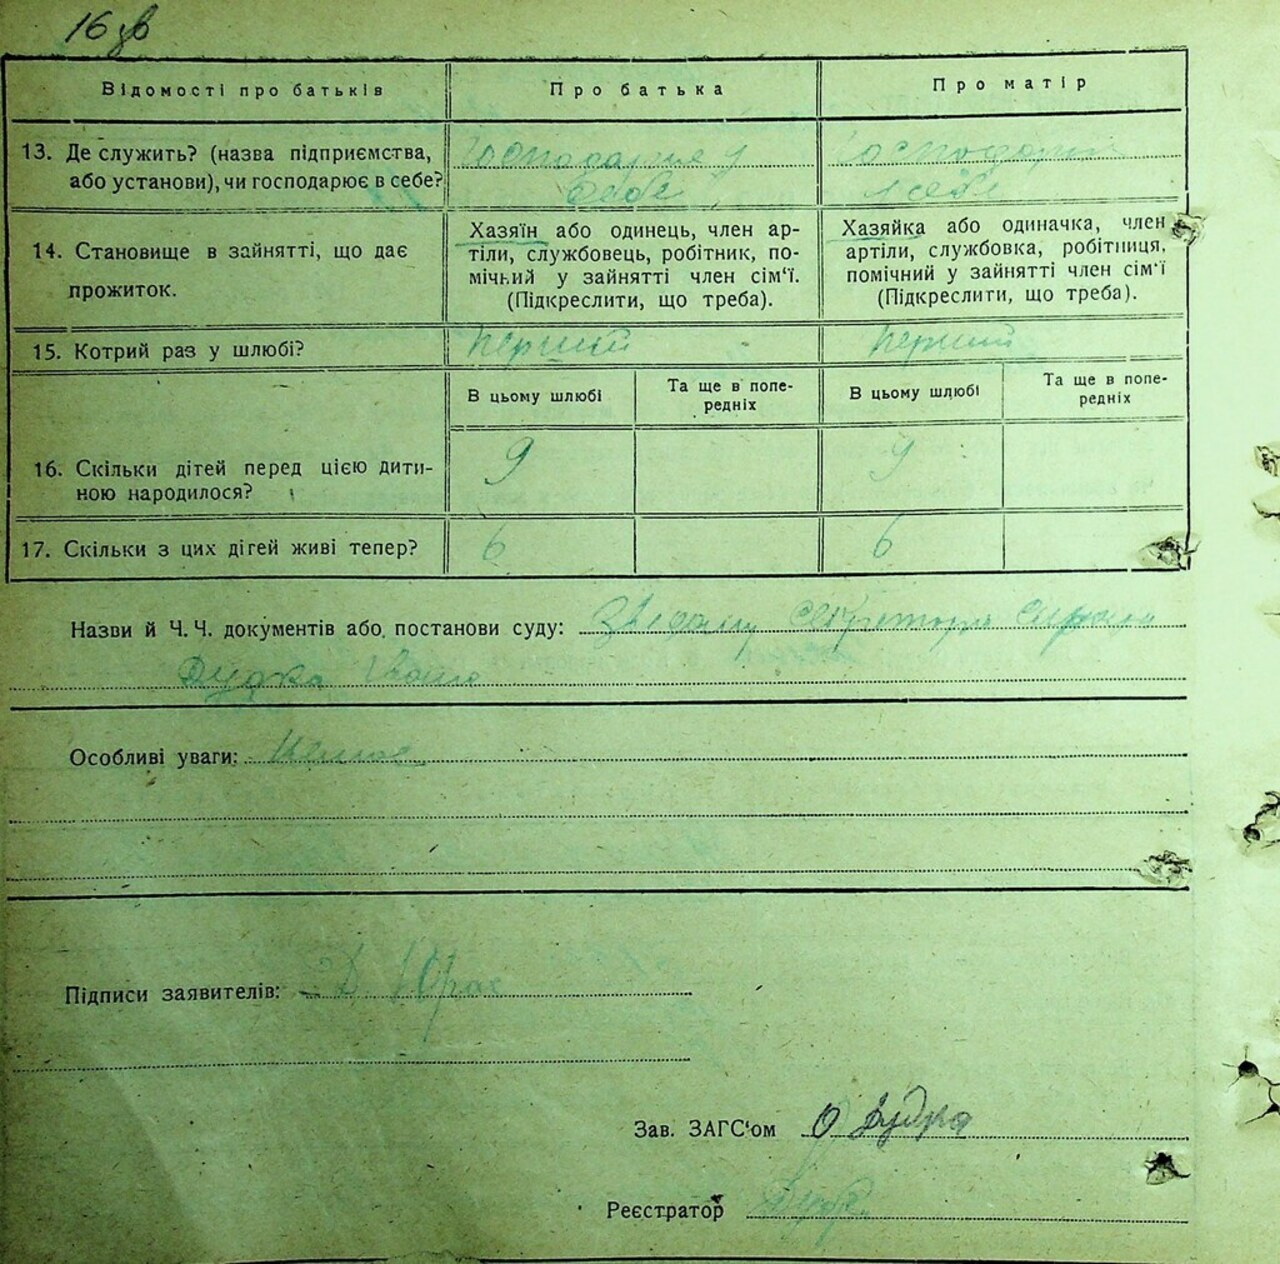 16 зв
Відомості про батьків
Про батька
Про матір
13. Де служить? (назва підприємства,
або установи), чи господарює в себе?
Господарює у
себе
Господарює
у себе
14. Становище в зайнятті, що дає
прожиток.
Хазяїн або одинець, член ар-
тіли, службовець, робітник, по-
мічний у зайнятті член сім'ї.
(Підкреслити, що треба).
Хазяйка або одиначка, член
артіли, службовка, робітниця,
помічний у зайнятті член сім'ї
(Підкреслити, що треба).
15. Котрий раз у шлюбі?
перший
перший
В цьому шлюбі
Та ще в попе-
редніх
В цьому шлюбі
Та ще в попе-
редніх
16. Скільки дітей перед цією дити-
ною народилося?
9
9
17. Скільки з цих дітей живі тепер?
6
6
Назви й Ч. Ч. документів або постанови суду: секретаря
Дудка
Особливі уваги: Немає
Підписи заявителів: Д.
Зав. ЗАГС'ом О Дудка
Реєстратор